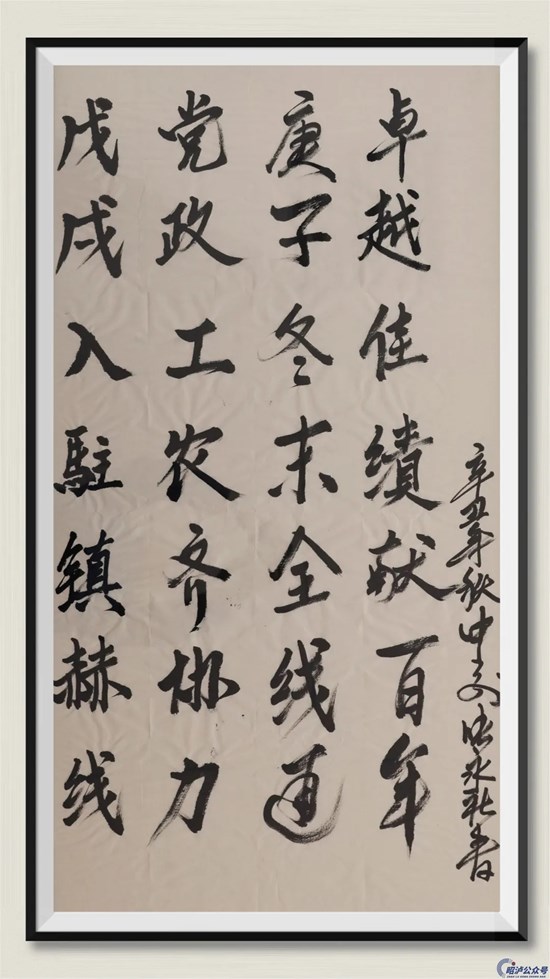 戊戌入駐镇赫线
党政工农齐协力
庚子冬末全线通
卓越佳績献百年
辛丑年秋中交永書
昭泸公众号